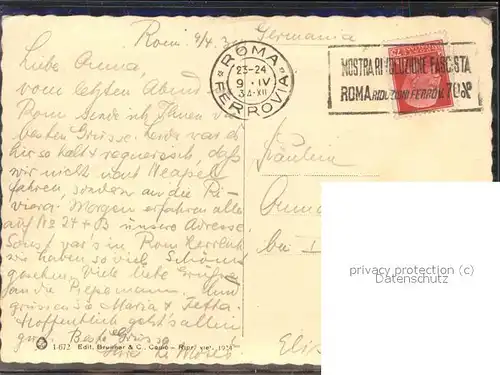 Rom 9/4. 34
Germania
Liebe Anma,
vom letzten Abend in
Rom sende ich Ihnen die
besten Grüsse. Leider war es
hier so kalt & regnerisch, daß
wir nicht nach Neapel
fahren, sondern an die Ri-
viera. Morgen erfahren alle
auf No 24 + 23 unsere Adresse.
Sonst war's in Rom herrlich
wir haben so viel Schönes
gesehen. Viele liebe Grüße
an die und
grüssen so Maria &
Hoffentlich geht's allen
gut. Beste Grüsse
Ihre
ROMA
23-24
9·IV
34·XII
FERROVIA
MOSTRA RIVOLUZIONE FASCISTA
ROMA RIDUZIONI FERROV. 70%
Fräulein
bei
privacy protection
Datenschutz
1-672 Edit. Brunner & C., Como - Ripr. viet. 1934